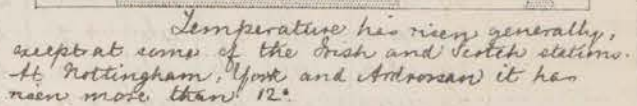 Temperature has risen generally,
except at some of the Irish and Scotch stations.
At Nottingham, York and Ardrossan it has
risen more than 12°